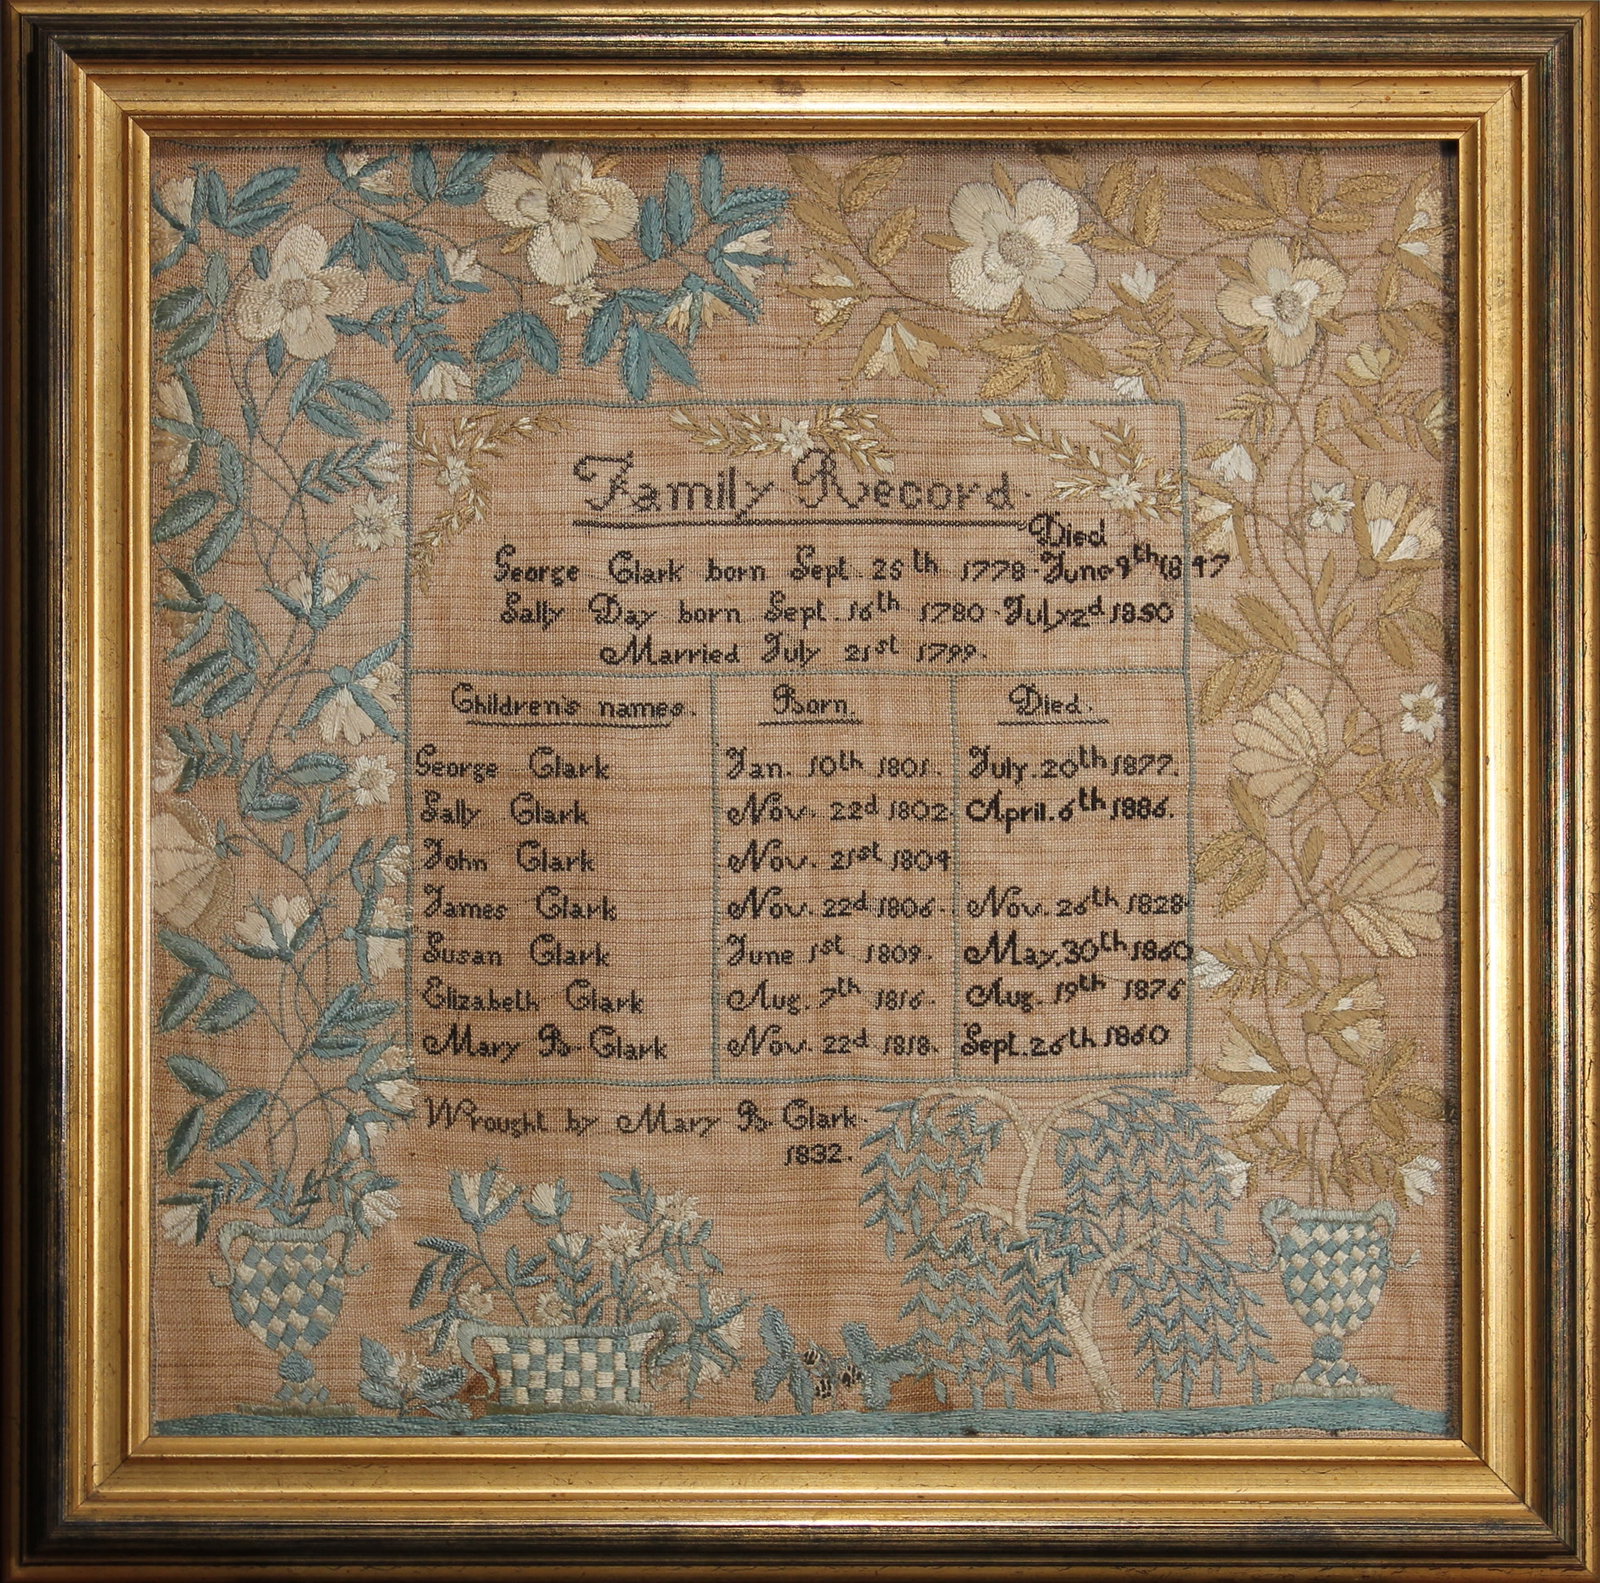 Family Record.
Died
George Clark born Sept. 25th 1778. June 9th 1847
Sally Day born Sept. 16th 1780. July 2d 1850
Married July 21st 1799.
Children's names. Born. Died.
George Clark Jan. 10th 1801. July. 20th 1877.
Sally Clark Nov. 22d 1802. April. 6th 1886.
John Clark Nov. 21st 1804
James Clark Nov. 22d 1806. Nov. 26th 1828.
Susan Clark June 1st 1809. May. 30th 1860
Elizabeth Clark Aug. 7th 1816. Aug. 19th 1876
Mary B. Clark Nov. 22d 1818. Sept. 26th 1860
Wrought by Mary B. Clark.
1832.